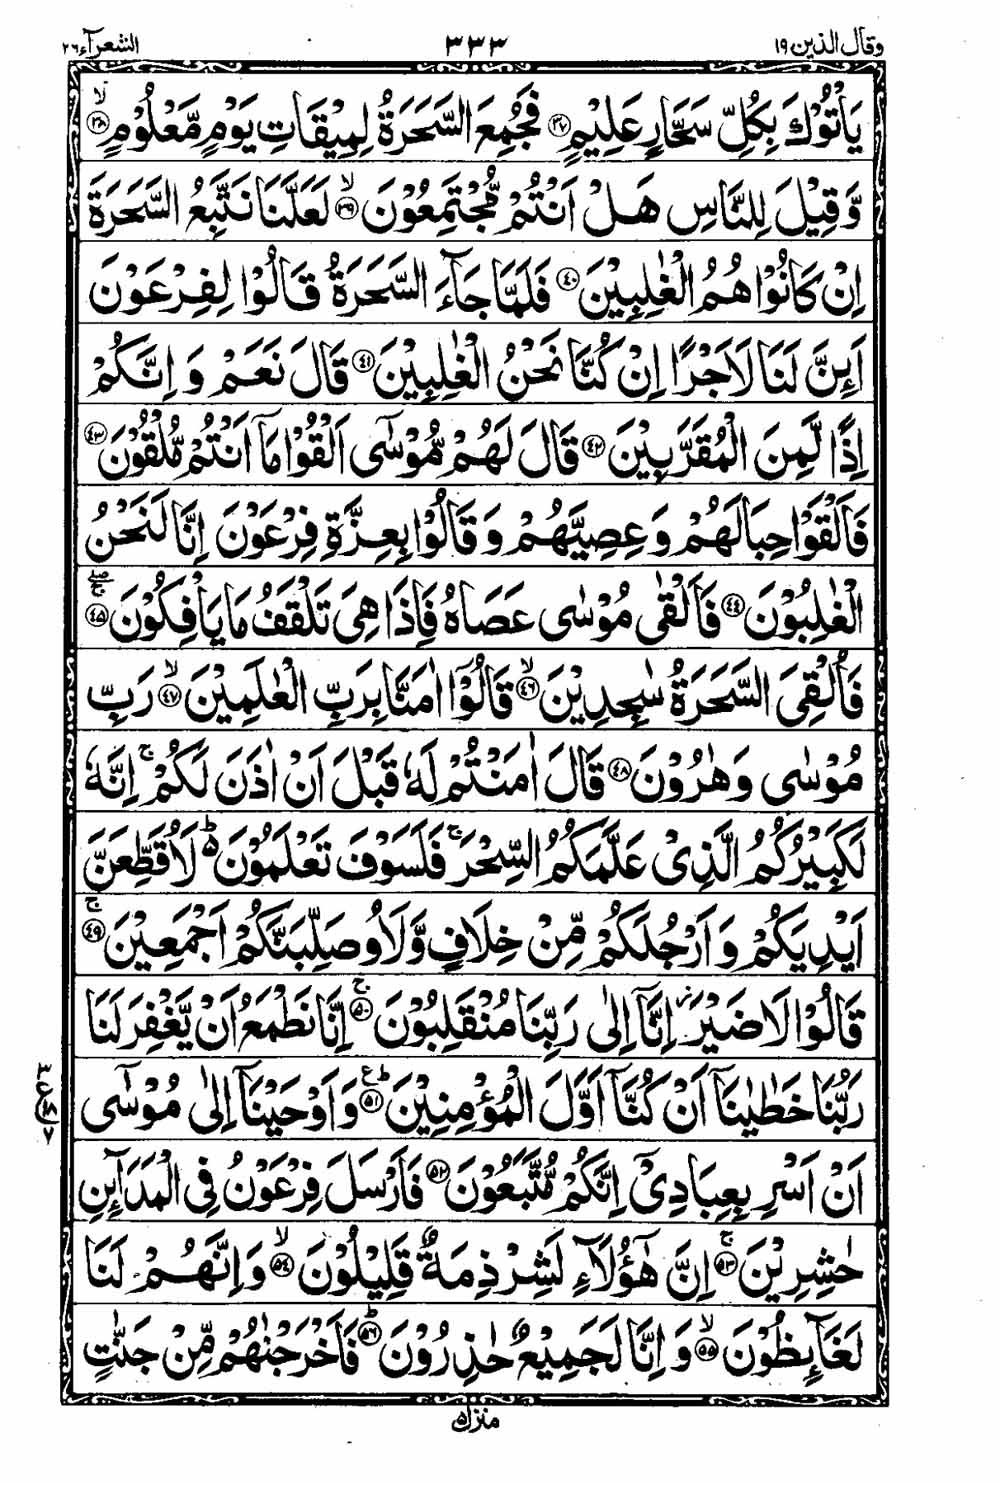 وقال الذين ١٩ ٣٣٣ الشعرآء ٢٦
يَاْتُوْكَ بِكُلِّ سَحَّارٍ عَلِيْمٍ ﴿٣٧﴾ فَجُمِعَ السَّحَرَةُ لِمِيْقَاتِ يَوْمٍ مَّعْلُوْمٍ ﴿٣٨﴾ۙ
وَّقِيْلَ لِلنَّاسِ هَلْ اَنْتُمْ مُّجْتَمِعُوْنَ ﴿٣٩﴾ۙ لَعَلَّنَا نَتَّبِعُ السَّحَرَةَ
اِنْ كَانُوْا هُمُ الْغٰلِبِيْنَ ﴿٤٠﴾ فَلَمَّا جَآءَ السَّحَرَةُ قَالُوْا لِفِرْعَوْنَ
اَئِنَّ لَنَا لَاَجْرًا اِنْ كُنَّا نَحْنُ الْغٰلِبِيْنَ ﴿٤١﴾ قَالَ نَعَمْ وَ اِنَّكُمْ
اِذًا لَّمِنَ الْمُقَرَّبِيْنَ ﴿٤٢﴾ قَالَ لَهُمْ مُّوْسٰٓى اَلْقُوْا مَآ اَنْتُمْ مُّلْقُوْنَ ﴿٤٣﴾
فَاَلْقَوْا حِبَالَهُمْ وَ عِصِيَّهُمْ وَ قَالُوْا بِعِزَّةِ فِرْعَوْنَ اِنَّا لَنَحْنُ
الْغٰلِبُوْنَ ﴿٤٤﴾ فَاَلْقٰى مُوْسٰى عَصَاهُ فَاِذَا هِىَ تَلْقَفُ مَا يَاْفِكُوْنَ ﴿٤٥﴾ۚۖ
فَاُلْقِىَ السَّحَرَةُ سٰجِدِيْنَ ﴿٤٦﴾ۙ قَالُوْٓا اٰمَنَّا بِرَبِّ الْعٰلَمِيْنَ ﴿٤٧﴾ۙ رَبِّ
مُوْسٰى وَ هٰرُوْنَ ﴿٤٨﴾ قَالَ اٰمَنْتُمْ لَهٗ قَبْلَ اَنْ اٰذَنَ لَكُمْۚ اِنَّهٗ
لَكَبِيْرُكُمُ الَّذِىْ عَلَّمَكُمُ السِّحْرَۚ فَلَسَوْفَ تَعْلَمُوْنَ ؕ لَاُقَطِّعَنَّ
اَيْدِيَكُمْ وَ اَرْجُلَكُمْ مِّنْ خِلَافٍ وَّ لَاُوصَلِّبَنَّكُمْ اَجْمَعِيْنَ ﴿٤٩﴾ۚ
قَالُوْا لَا ضَيْرَ اِنَّآ اِلٰى رَبِّنَا مُنْقَلِبُوْنَ ﴿٥٠﴾ۚ اِنَّا نَطْمَعُ اَنْ يَّغْفِرَ لَنَا
رَبُّنَا خَطٰيٰنَآ اَنْ كُنَّآ اَوَّلَ الْمُؤْمِنِيْنَ ﴿٥١﴾ؕع وَ اَوْحَيْنَآ اِلٰى مُوْسٰٓى
اَنْ اَسْرِ بِعِبَادِىْٓ اِنَّكُمْ مُّتَّبَعُوْنَ ﴿٥٢﴾ فَاَرْسَلَ فِرْعَوْنُ فِى الْمَدَآئِنِ
حٰشِرِيْنَ ﴿٥٣﴾ۚ اِنَّ هٰٓؤُلَآءِ لَشِرْذِمَةٌ قَلِيْلُوْنَ ﴿٥٤﴾ۙ وَ اِنَّهُمْ لَنَا
لَغَآئِظُوْنَ ﴿٥٥﴾ۙ وَ اِنَّا لَجَمِيْعٌ حٰذِرُوْنَ ﴿٥٦﴾ؕ فَاَخْرَجْنٰهُمْ مِّنْ جَنّٰتٍ
منزل ٥